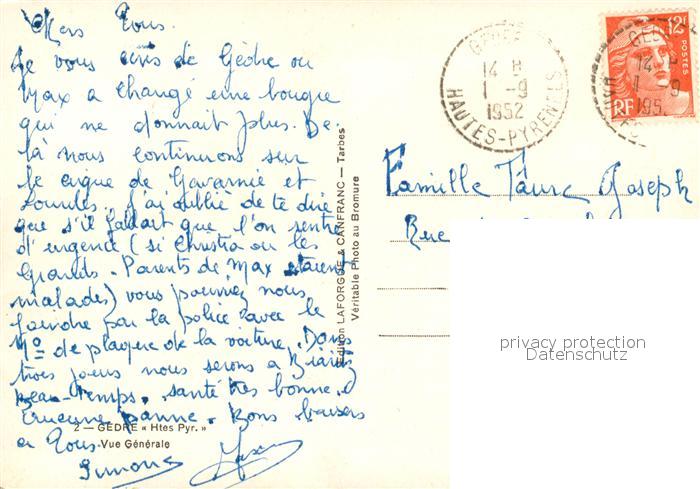 Mes Tous.
Je vous écris de Gèdre ou
Max a changé une bougie
qui ne donnait plus. De
là nous continuons sur
le cirque de Gavarnie et
Lourdes. J'ai oublié de te dire
que s'il fallait que l'on rentre
d'urgence (si Christia ou les
Grands. Parents de Max étaient
malades) vous pourriez nous
joindre par la police avec le
No de plaque de la voiture. Dans
trois jours nous serons a Biarritz
Beau-Temps. santé très bonne.
Aucune panne. Bons baisers
a Tous
Simone Max
2 — GÈDRE « Htes Pyr. »
Vue Générale
Edition LAFORGUE & CANFRANC — Tarbes
Véritable Photo au Bromure
GEDRE
14 H
1 -9
1952
HAUTES-PYRENEES
12F
POSTES
RF
GED
14 H
1 -9
195
HAU
Famille Joseph
Rue
privacy protection
Datenschutz